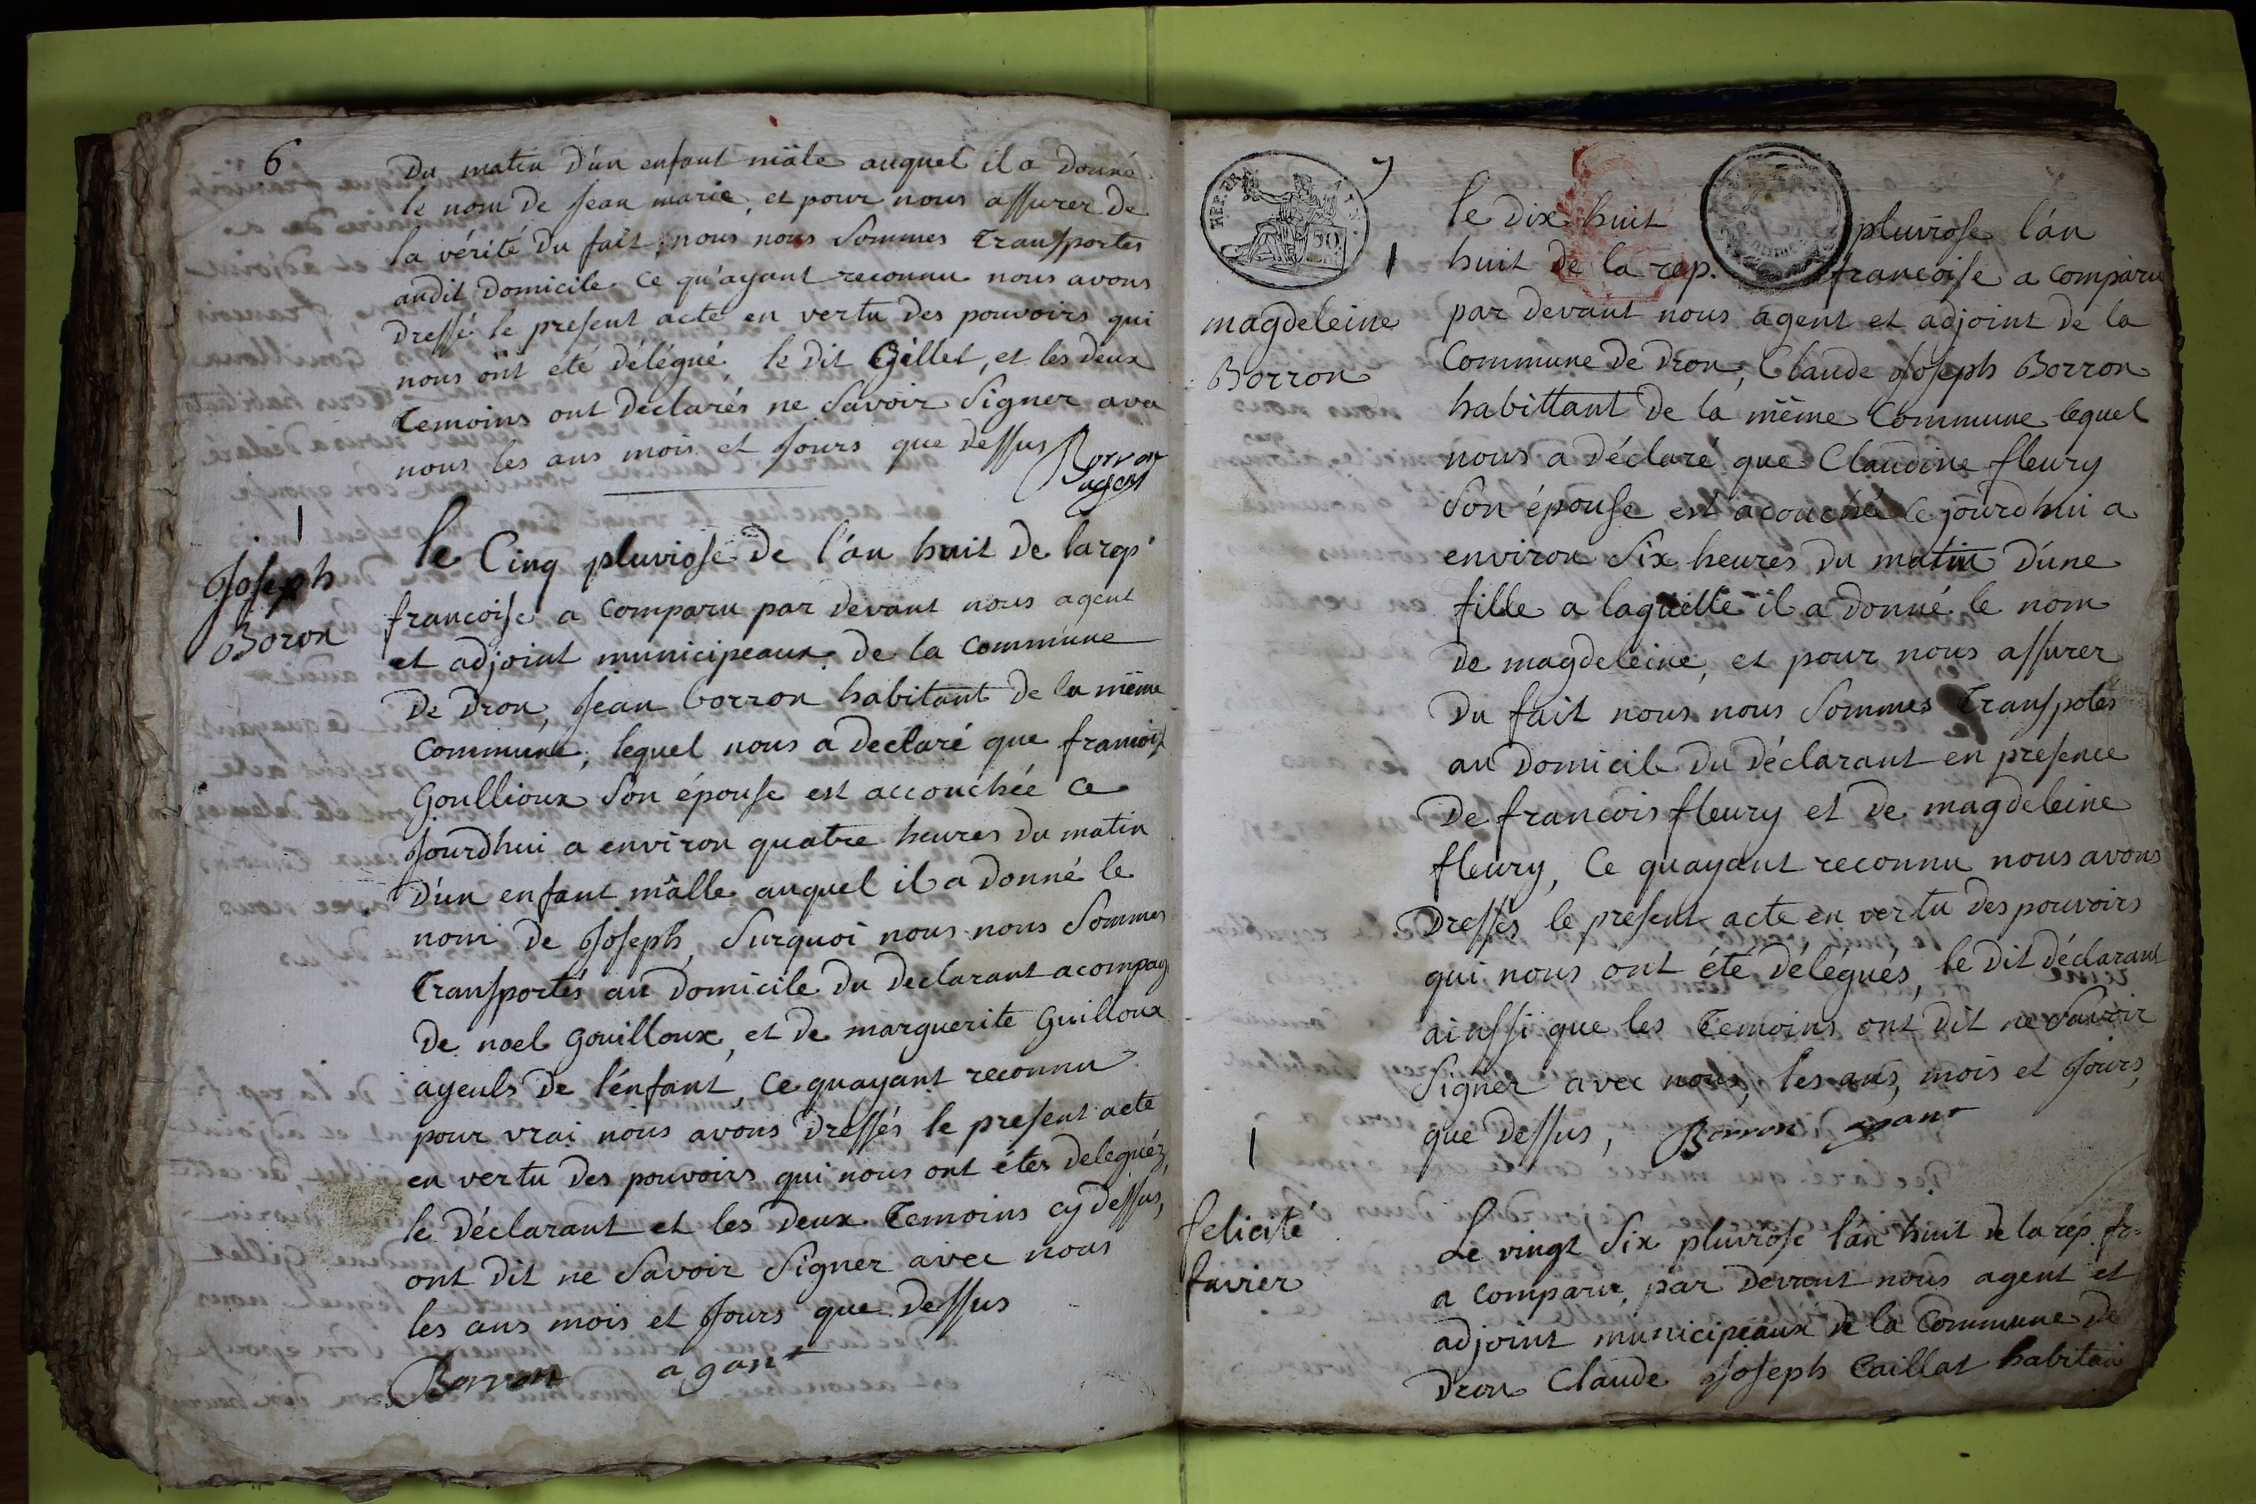 6
Du matin D'un enfant mâle auquel il a Donné
le nom De Jean marie, et pour nous assurer de
la vérité Du fait, nous nous Sommes Transportés
audit Domicile Ce qu'ayant reconnu nous avons
Dressé le present acte en vertu Des pouvoirs qui
nous ont été délégué, le dit Gillet, et les deux
Temoins ont Declarés ne Savoir Signer avec
nous les ans mois et Jours que Dessus Borron
agent
1
Joseph
Boron
le Cinq pluviose De l'an huit De la rep.
francoise a Comparu par Devant nous agent
et adjoint municipeaux De la Commune
De Dron, Jean borron habitant De la même
Commune, lequel nous a Declaré que francoise
Goullioux Son épouse est accouchée Ce
Jourdhui a environ quatre heures Du matin
D'un enfant mâlle auquel il a Donné le
nom De Joseph, Surquoi nous nous Sommes
Transportés au Domicile Du Declarant acompag
De noel Gouilloux, et De marguerite Guilloux
ayeuls De l'enfant, Ce quayant reconnu
pour vrai nous avons Dressés le present acte
en vertu Des pouvoirs qui nous ont étes Deleguéz,
le Déclarant et les Deux Temoins cy Dessus,
ont Dit ne Savoir Signer avec nous
les ans mois et Jours que Dessus
Borron agant
7
1
magdeleine
Borron
le Dix huit pluviose l'an
huit De la rep. francoise a Comparu
par Devant nous agent et adjoint De la
Commune De Dron, Claude Joseph Borron
habittant De la même Commune lequel
nous a Déclaré que Claudine fleury
Son épouse est acouchée Ce jourdhui a
environ Six heures Du matin D'une
fille a laquelle il a Donné le nom
De magdeleine, et pour nous assurer
Du fait nous nous Sommes Transpotés
au Domicile Du Déclarant en presence
De francois fleury et De magdeleine
fleury, Ce quayant reconnu nous avons
Dressés le present acte en vertu Des pouvoirs
qui nous ont été Délégués, le Dit Déclarant
ainssi que les Temoins ont Dit ne Savoir
Signer avec nous, les ans, mois et Jours,
que Dessus, Borron agant
1
felicité
favier
Le vingt Six pluviose l'an huit De la rep. fr=
a Comparu, par Devant nous agent et
adjoint municipeaux De la Commune De
Dron Claude Joseph Caillat habitan